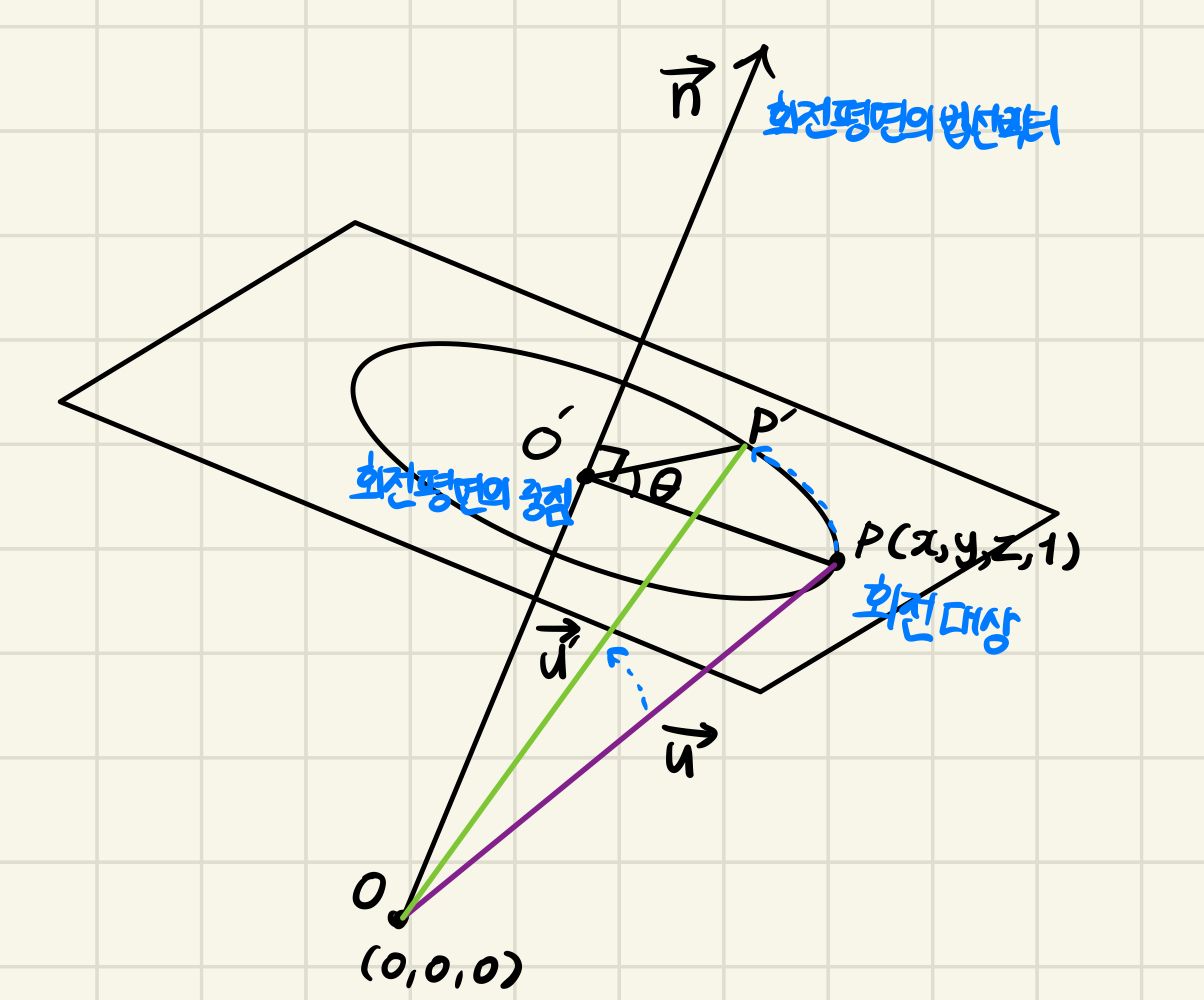 n
회전평면의 법선벡터
O′
P′
회전평면의 중점
θ
P(x,y,z,1)
회전 대상
u′
u
O
(0,0,0)